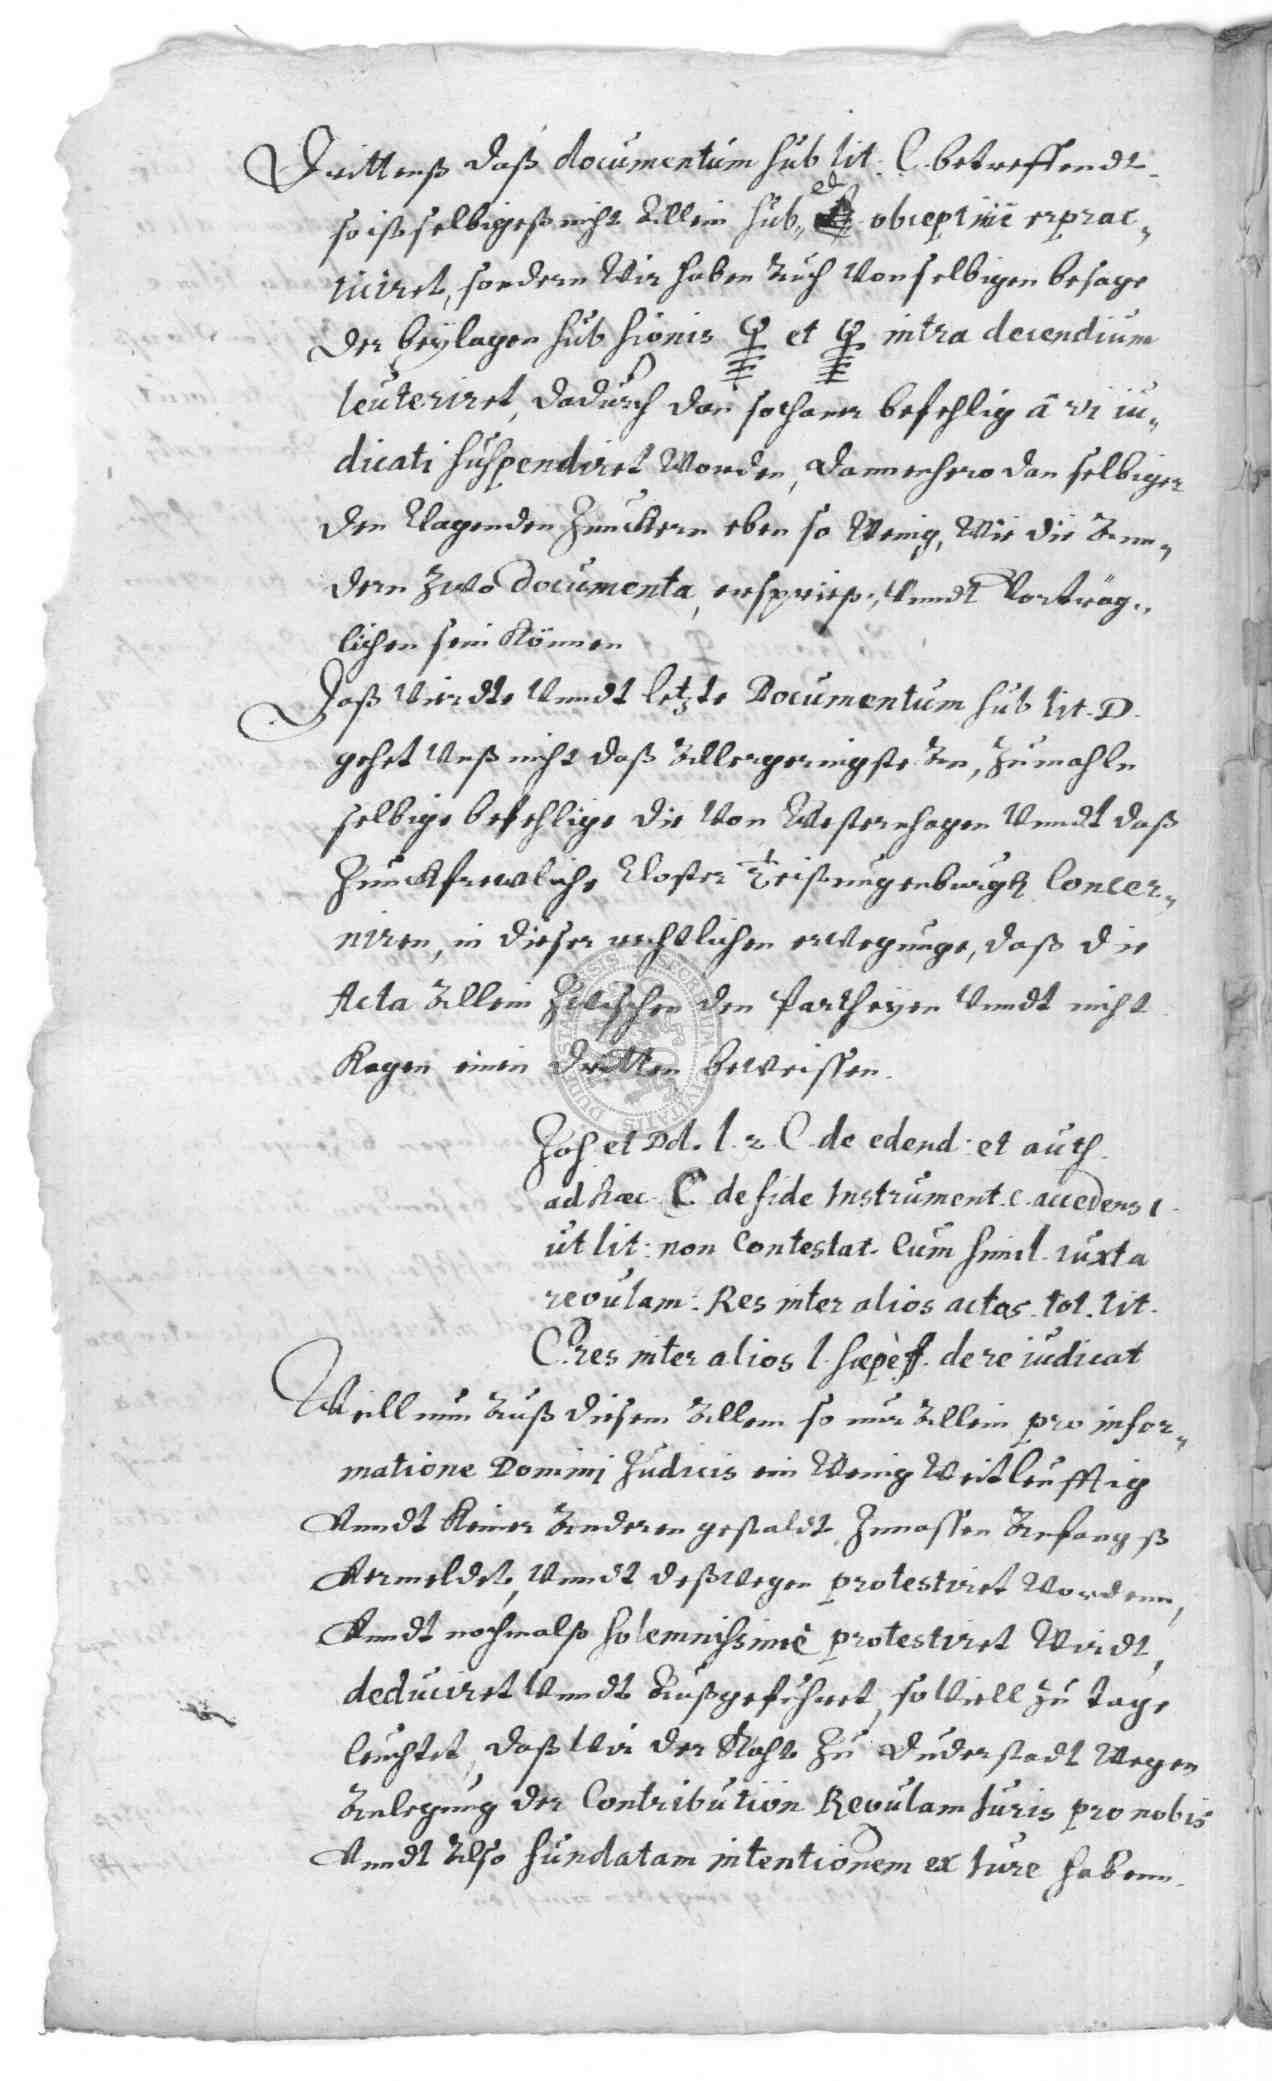 Drittenß daß documentum sub lit. C. betreffendt
so ist selbigeß nicht Allein sub„ et obreptitiè exprac„
ticiret, sondern Wir haben Auch Von selbigen besage
der beÿlagen sub signis ☿ et ☿ intra decendium
leuteriret, dadurch dan sothaner befehlig â vi iu„
dicati suspendiret Worden, dannenhero dan selbiger
den Clagenden Junckern eben so Wenig, Wie die An„
dern Zwo documenta, erspries„ Vundt Vorträg„
lichen sein Können
Daß Vierdte Vundt letzte Documentum sub lit. D.
gehet Vnß nicht daß Allergeringste An, Zumahln
selbige befehlige die Von Westernhagen Vundt daß
Junckfrewliche Closter Teistungenburgk Concer„
niren, in dieser rechtlichen erwegunge, daß die
Acta Allein Zwischen den Partheÿen Vundt nicht
Kegen einen dritten beweissen.
Jos. et Dd. l. 2. C. de edend. et auth.
ad hæc C. de fide Instrument. c. accedens 1
ut lit. non Contestat. Cum simil. iuxta
regulam: Res inter alios actas. tot. tit.
C. res inter alios l. sæpè ff. de re iudicat
Weill nun Auß diesem Allem so nur Allein pro infor„
matione Domini Judicis ein Wenig Weitleufftig
Vundt Keiner Anderen gestaldt Jnmassen Anfangß
Vermeldet, Vundt deßwegen protestiret Wordenn,
Vundt nochmalß solemnissimè protestiret Wirdt,
deduciret Vundt Außgeführet, so Viell zu tage
leuchtet, daß Wir der Raht Zu Duderstadt Wegen
Anlegung der Contribution Regulam Iuris pro nobis
Vundt Also fundatam intentionem ex Iure habenn.